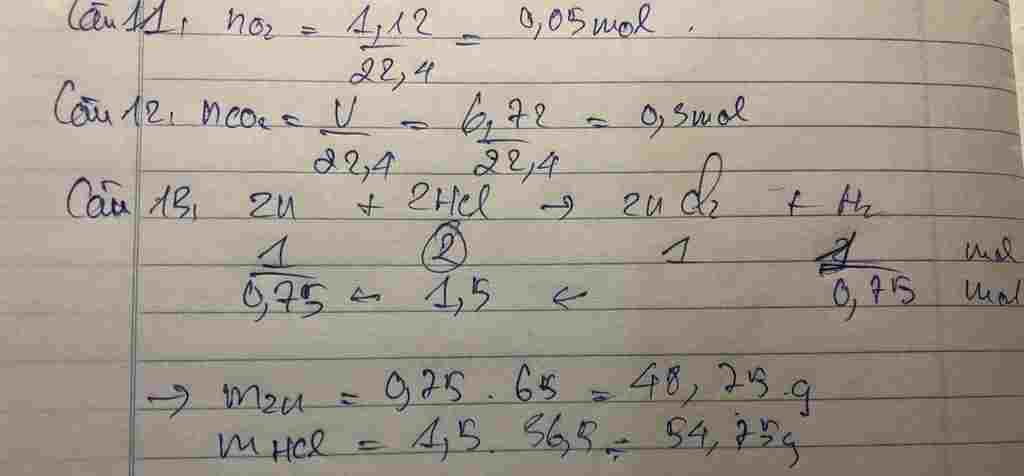 Câu 11, nO₂ = 1,12 / 22,4 = 0,05 mol.
Câu 12, nCO₂ = V / 22,4 = 6,72 / 22,4 = 0,3 mol
Câu 13, Zn + 2HCl → ZnCl₂ + H₂
1 2 1 1 mol
0,75 ← 1,5 ← 0,75 mol
→ mZn = 0,75 . 65 = 48,75 g
mHCl = 1,5 . 36,5 = 54,75g